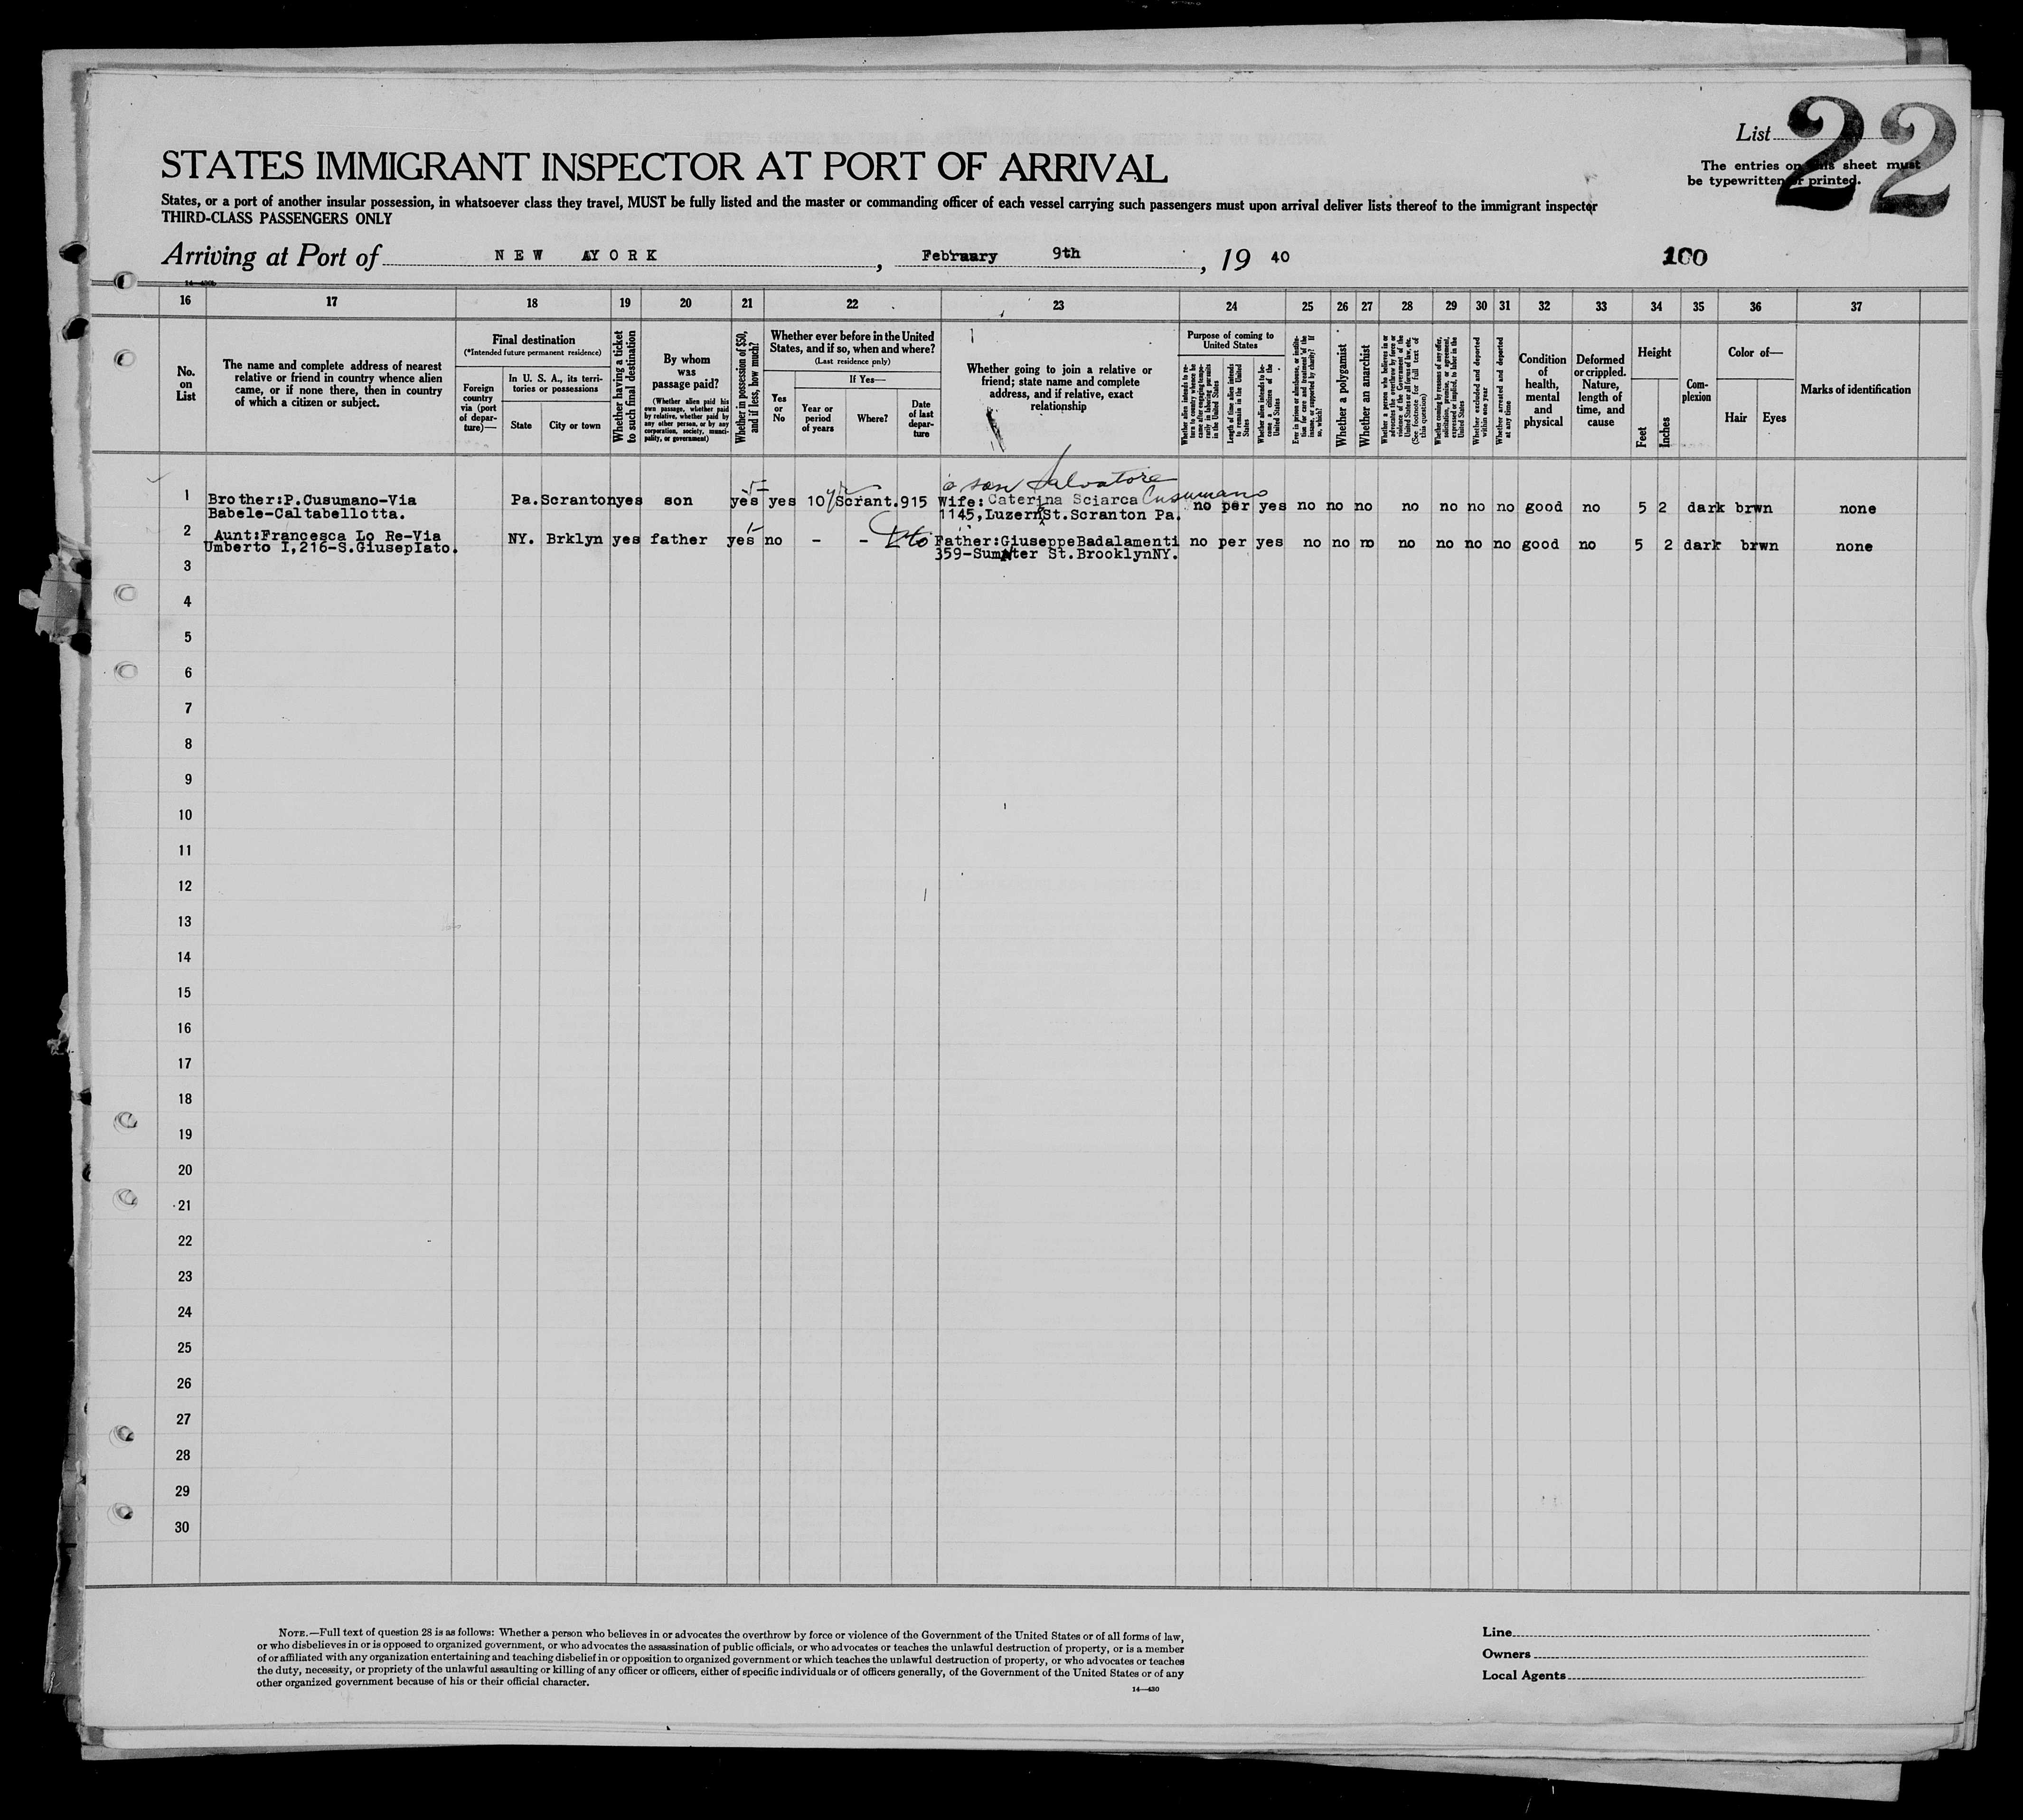 List 22
The entries on this sheet must
be typewritten or printed.
STATES IMMIGRANT INSPECTOR AT PORT OF ARRIVAL
States, or a port of another insular possession, in whatsoever class they travel, MUST be fully listed and the master or commanding officer of each vessel carrying such passengers must upon arrival deliver lists thereof to the immigrant inspector
THIRD-CLASS PASSENGERS ONLY
Arriving at Port of NEW YORK, February 9th, 19 40
100
16 17 18 19 20 21 22 23 24 25 26 27 28 29 30 31 32 33 34 35 36 37
No.
on
List
The name and complete address of nearest
relative or friend in country whence alien
came, or if none there, then in country
of which a citizen or subject.
Final destination
(*Intended future permanent residence)
Foreign
country
via (port
of depar-
ture)—
In U. S. A., its terri-
tories or possessions
State City or town
Whether having a ticket
to such final destination
By whom
was
passage paid?
(Whether alien paid his
own passage, whether paid
by relative, whether paid by
any other person, or by any
corporation, society, munici-
pality, or government)
Whether in possession of $50,
and if less, how much?
Whether ever before in the United
States, and if so, when and where?
(Last residence only)
Yes
or
No
If Yes—
Year or
period
of years
Where?
Date
of last
depar-
ture
Whether going to join a relative or
friend; state name and complete
address, and if relative, exact
relationship
Purpose of coming to
United States
Whether alien intends to re-
turn to country whence he
came after engaging tempo-
rarily in laboring pursuits
in the United States
Length of time alien intends
to remain in the United
States
Whether alien intends to be-
come a citizen of the
United States
Ever in prison or almshouse, or institu-
tion for care and treatment of the
insane, or supported by charity? If
so, which?
Whether a polygamist
Whether an anarchist
Whether a person who believes in or
advocates the overthrow by force or
violence of the Government of the
United States or all forms of law, etc.
(See footnote for full text of
this question)
Whether coming by reasons of any offer,
solicitation, promise, or agreement,
expressed or implied, to labor in the
United States
Whether excluded and deported
within one year
Whether arrested and deported
at any time
Condition
of
health,
mental
and
physical
Deformed
or crippled.
Nature,
length of
time, and
cause
Height
Feet Inches
Com-
plexion
Color of—
Hair Eyes
Marks of identification
a son Salvatore
Cusumano
1 Brother:P.Cusumano-Via Pa. Scranton yes son yes yes 10 yr Scrant. 915 Wife: Caterina Sciarca no per yes no no no no no no no good no 5 2 dark brwn none
Babele-Caltabellotta. 1145,Luzern St.Scranton Pa.
2 Aunt:Francesca Lo Re-Via NY. Brklyn yes father yes no - - Father:GiuseppeBadalamenti no per yes no no no no no no no good no 5 2 dark brwn none
Umberto I,216-S.GiusepIato. 359-Sumpter St.BrooklynNY.
3
4
5
6
7
8
9
10
11
12
13
14
15
16
17
18
19
20
21
22
23
24
25
26
27
28
29
30
NOTE.—Full text of question 28 is as follows: Whether a person who believes in or advocates the overthrow by force or violence of the Government of the United States or of all forms of law,
or who disbelieves in or is opposed to organized government, or who advocates the assassination of public officials, or who advocates or teaches the unlawful destruction of property, or is a member
of or affiliated with any organization entertaining and teaching disbelief in or opposition to organized government or which teaches the unlawful destruction of property, or who advocates or teaches
the duty, necessity, or propriety of the unlawful assaulting or killing of any officer or officers, either of specific individuals or of officers generally, of the Government of the United States or of any
other organized government because of his or their official character.
14—430
Line
Owners
Local Agents